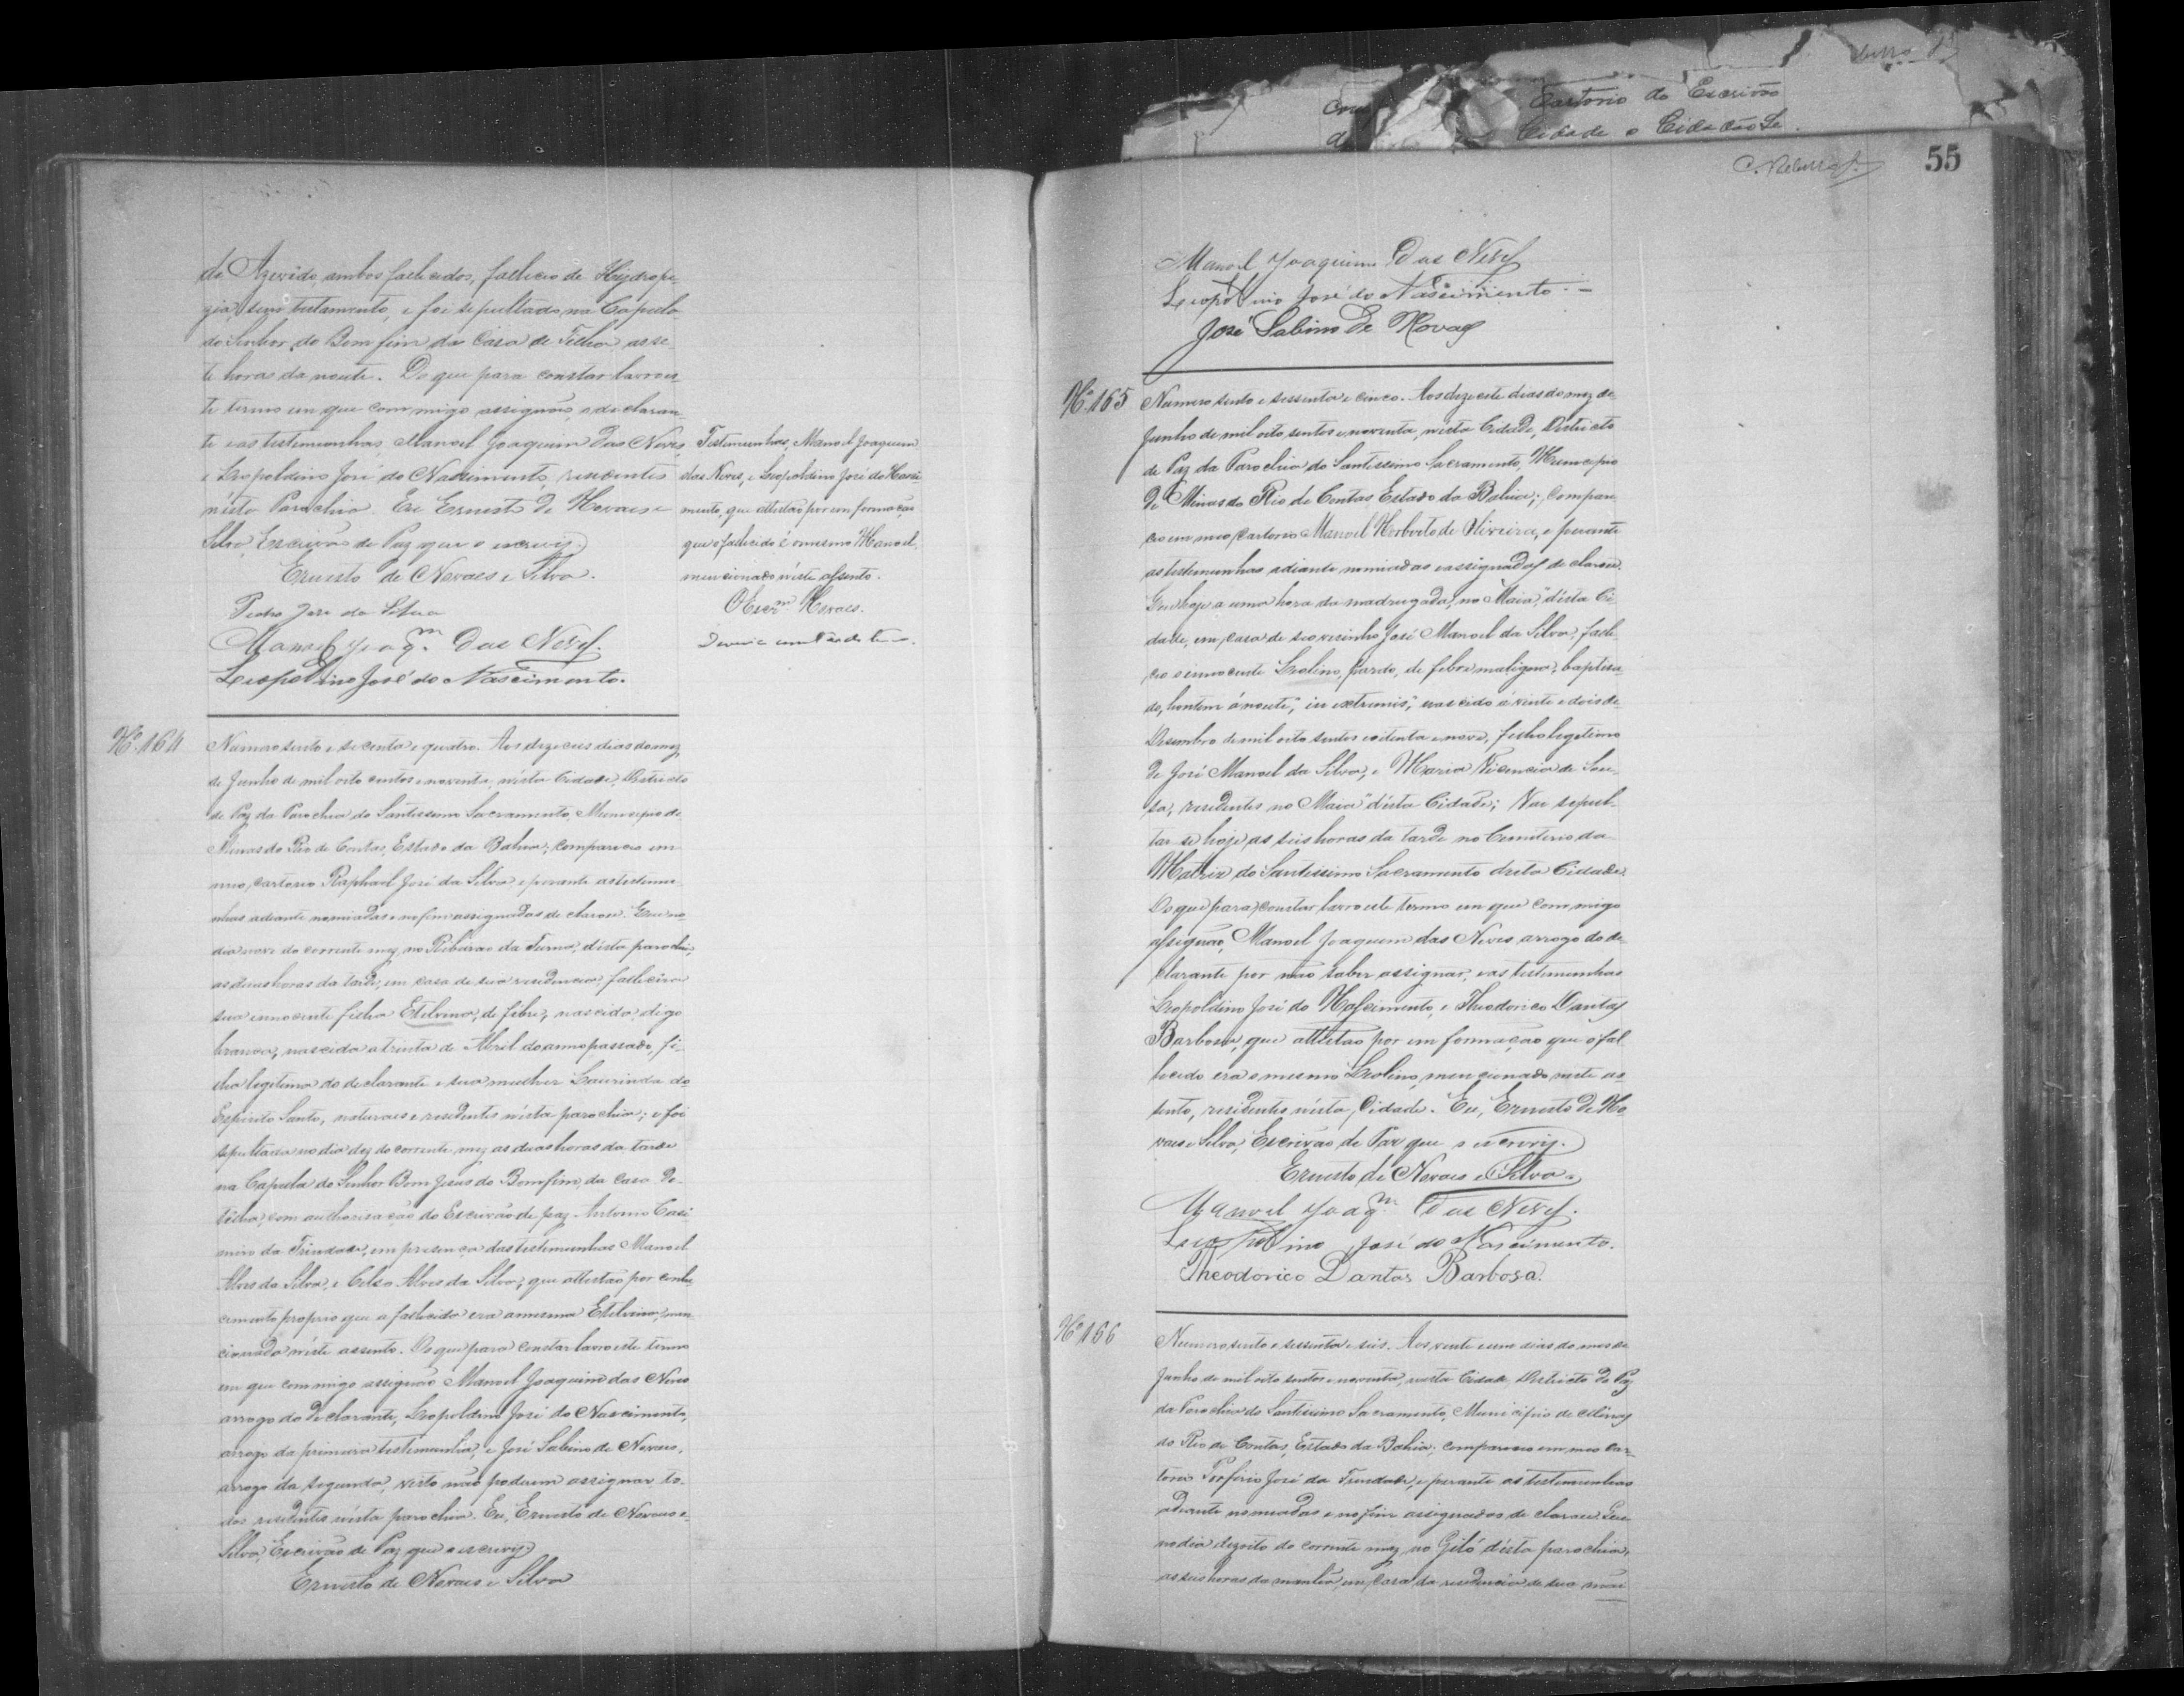 de Azevedo, ambos fallecidos, falleceo de Hydrope-
zia, sem testamento, e foi sepultado na Capella
do Senhor do Bom fim da Casa de Telha, as se-
te horas da noute. Do que para constar lavro es-
te termo em que commigo assignão, o declaran-
te e as testemunhas, Manoel Joaquim das Neves,
e Leopoldino José do Nascimento, residentes
nésta Parochia. Eu Ernesto de Novaes e
Silva, Escrivão de Paz que o escrevi.
Ernesto de Novaes e Silva.
Pedro José da Silva
Manoel Joaqm. Das Neves.
Leopoldino José do Nascimento.
Testemunhas, Manoel Joaquim
das Neves, e Leopoldino José do Nasci-
mento, que attestão por informação
que o fallecido é o mesmo Manoel,
mencionado n'éste assento.
O Escrm. Novaes.
No. 164
Numero sento e secenta e quatro. Aos dezeceis dias do mez
de Junho de mil oito centos e noventa, nésta Cidade, Districto
de Paz da Parochia do Santissimo Sacramento, Municipio de
Minas do Rio de Contas, Estado da Bahia; compareceo em
meo cartorio Raphael José da Silva e perante as testemu-
nhas adiante nomiadas e no fim assignadas declarou. Que no
dia nove do corrente mez, no Ribeirão da Furna, désta parochia,
as duas horas da tarde, em casa de sua residencia, fallecêra
sua innocente filha Etelvina, de fébre, nascida, digo
branca, nascida a trinta de Abril do anno passado, fi-
lha legitima do declarante e sua mulher Laurinda do
Espirito Santo, naturaes e residentes nésta parochia; e foi
sepultada no dia dez do corrente mez as duas horas da tarde
na Capella do Senhor Bom Jesus do Bomfim, da Casa de
telha, com authorisação do Escrivão de paz Antonio Casi-
miro da Trindade, em presença das testemunhas Manoel
Alves da Silva, e Celso Alves da Silva, que attestão por conhe-
cimento proprio que a fallecida era a mesma Etelvina, men-
cionada n'éste assento. Do que para constar lavro este termo
em que commigo assignão Manoel Joaquim das Neves
arrogo do declarante, Leopoldino José do Nascimento,
arrogo da primeira testemunha, e José Sabino de Novaes,
arrogo da segunda, visto não poderem assignar to-
dos residentes nésta parochia. Eu, Ernesto de Novaes e
Silva, Escrivão de Paz que o escrevi.
Ernesto de Novaes e Silva
Cartorio do Escrivão
Cidade o Cidadão
55
Manoel Joaquim Das Neves
Leopoldino José do Nascimento.
José Sabino De Novaes
No. 165
Numero sento e sessenta e cinco. Aos dezecete dias do mez de
Junho de mil oito sentos e noventa, nésta Cidade, Districto
de Paz da Parochia do Santissimo Sacramento, Municipio
de Minas do Rio de Contas Estado da Bahia; compare-
ceo em meo cartorio Manoel Norberto de Oliveira, e perante
as testemunhas adiante nomiadas e assignadas declarou.
Que hoje a uma hora da madrugada, no "Maia", désta Ci-
dade, em casa de seo visinho José Manoel da Silva, falle-
ceo o innocente Leolino, pardo, de febre maligna, baptisa-
do, hontem á noute, "in extremis," nascido á vinte e dois de
Desembro de mil oito sentos e oitenta e nove, filho legitimo
de José Manoel da Silva, e Maria Vicencia de Sou-
sa, residentes no "Maia" désta Cidade; Vae sepul-
tar-se hoje, as seis horas da tarde no Cemiterio da
Matriz do Santissimo Sacramento désta Cidade.
Do que para constar lavro este termo em que commigo
assignão, Manoel Joaquim das Neves, arrogo do de-
clarante por não saber assignar, e as testemunhas
Leopoldino José do Nascimento, e Theodorico Dantas
Barbosa, que attestão por informação que o fal-
lecido era o mesmo Leolino, mencionado neste as-
sento, residentes nésta Cidade. Eu, Ernesto de No-
vaes e Silva, Escrivão de Paz que o escrevi.
Ernesto de Novaes e Silva.
Manoel Joaqm. Das Neves.
Leopoldino José do Nascimento.
Theodorico Dantas Barbosa.
No. 166
Numero sento e sessenta e seis. Aos vinte e um dias do mes de
Junho de mil oito sentos e noventa, nesta Cidade, Districto de Paz
da Parochia do Santissimo Sacramento, Municipio de Minas
do Rio de Contas, Estado da Bahia, compareceo em meo Car-
torio Porfirio José da Trindade, e perante as testemunhas
adiante nomiadas e no fim assignadas declarou. Que
no dia dezoito do corrente mez, no Gitó désta parochia,
as seis horas da manhã, em casa da residencia de sua mãi